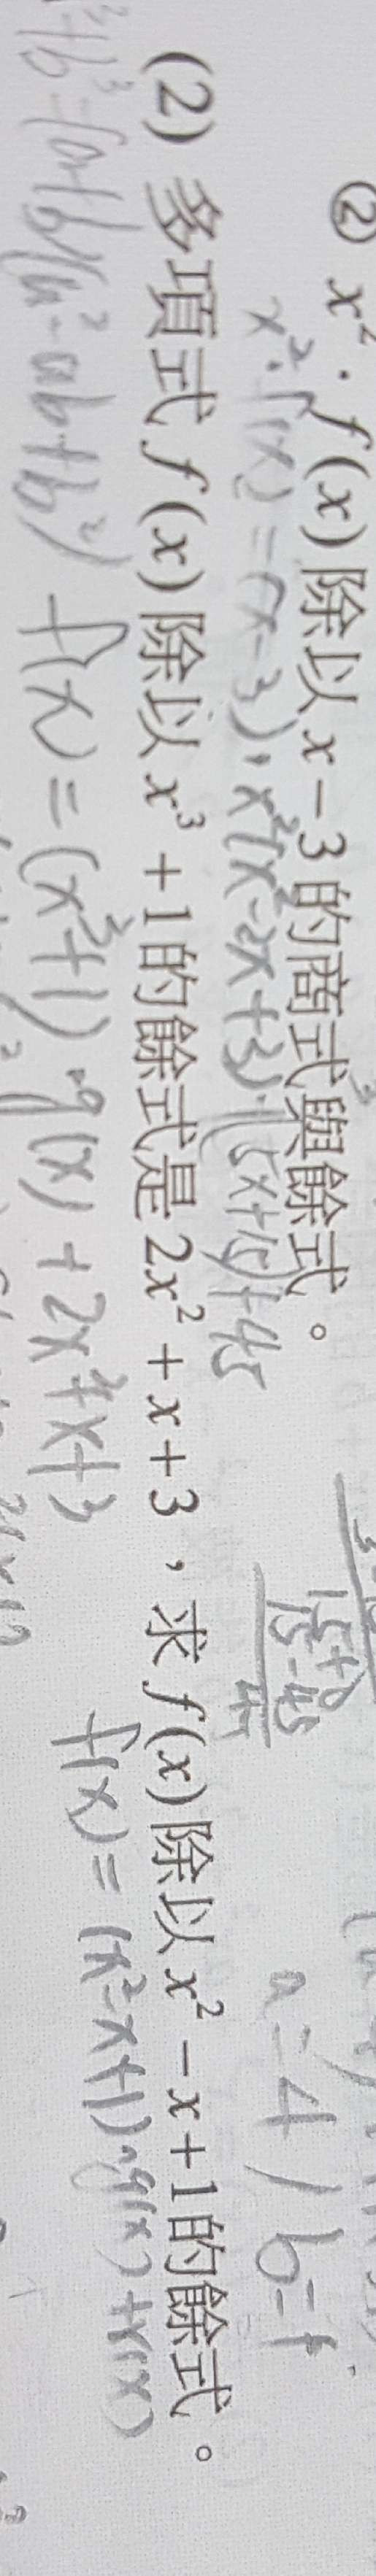 ② x²·f(x)除以x-3的商式與餘式。
x²·f(x)=(x-3)·x²(x²-2x+3)+(5x+15)+45
15+0
15-45
45
a=4 / b=1
(2) 多項式f(x)除以x³+1的餘式是2x²+x+3,求f(x)除以x²-x+1的餘式。
³+b³=(a+b)(a²-ab+b²)
f(x)=(x³+1)·q(x)+2x²+x+3
f(x)=(x²-x+1)·q(x)+r(x)